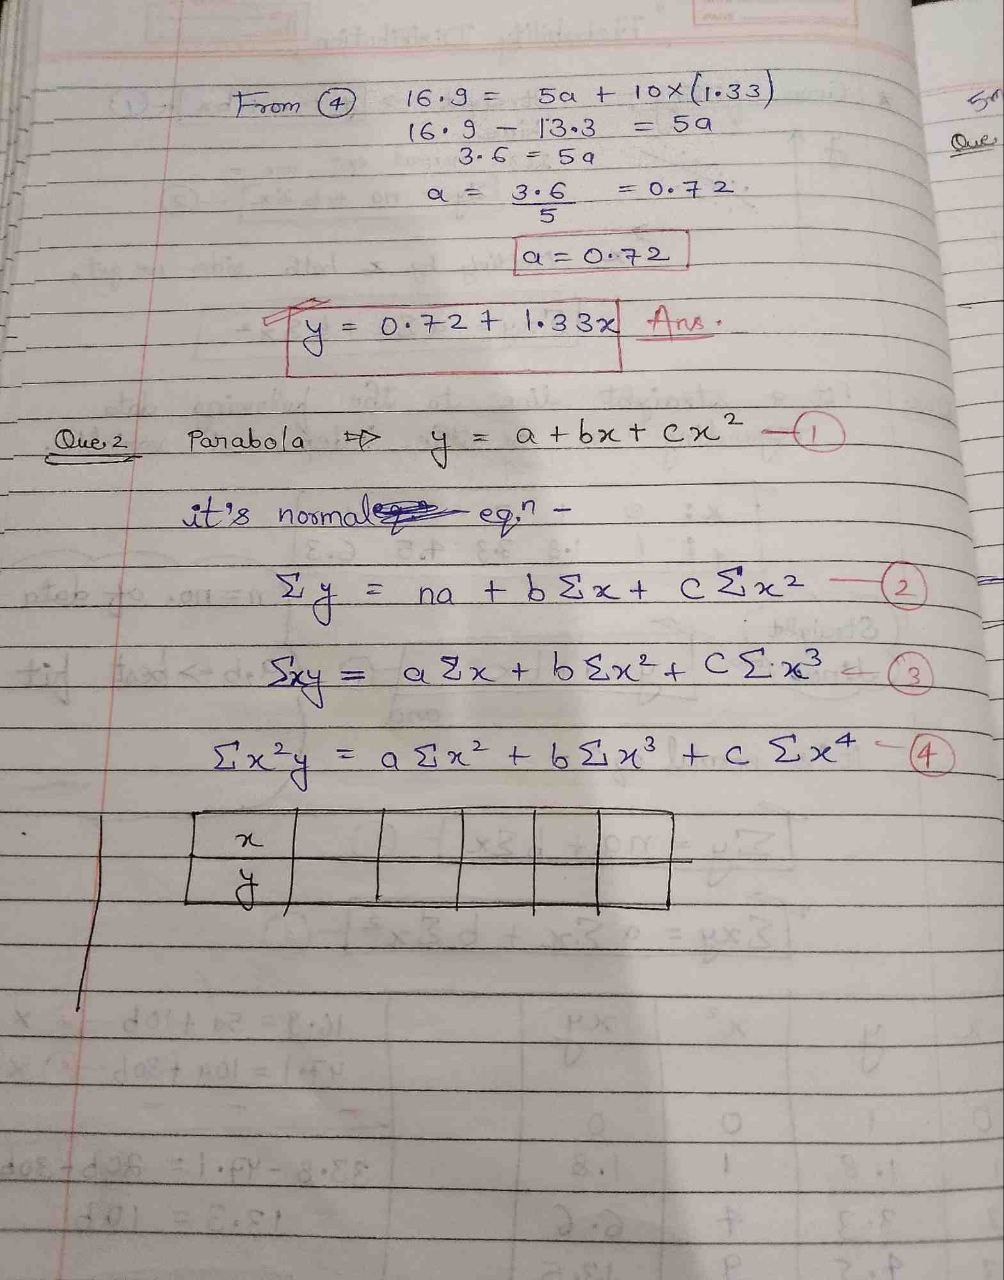 From ④ 16.9 = 5a + 10×(1.33)
16.9 - 13.3 = 5a
3.6 = 5a
a = 3.6/5 = 0.72
a = 0.72
y = 0.72 + 1.33x Ans.
Que. 2 Parabola ⇒ y = a + bx + cx² — ①
it's normal eq.n -
Σy = na + bΣx + cΣx² — ②
Σxy = aΣx + bΣx² + CΣx³ — ③
Σx²y = aΣx² + bΣx³ + cΣx⁴ — ④
x
y
Que.